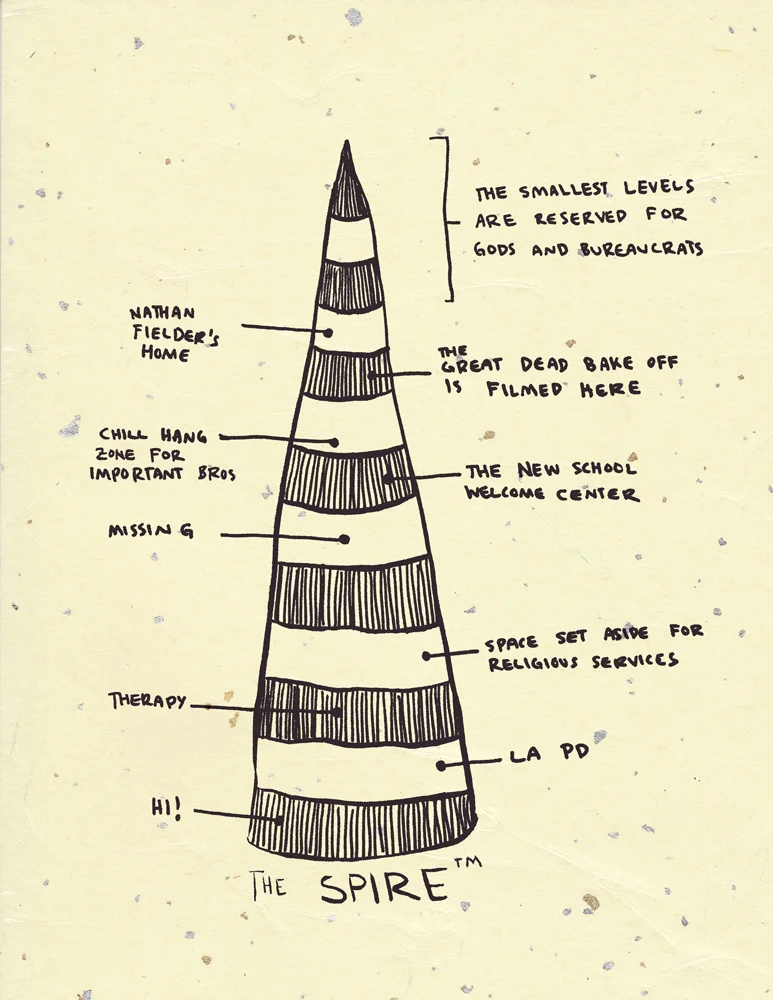 THE SMALLEST LEVELS
ARE RESERVED FOR
GODS AND BUREAUCRATS
NATHAN
FIELDER'S
HOME
THE
GREAT DEAD BAKE OFF
IS FILMED HERE
CHILL HANG
ZONE FOR
IMPORTANT BROS
THE NEW SCHOOL
WELCOME CENTER
MISSING
SPACE SET ASIDE FOR
RELIGIOUS SERVICES
THERAPY
LA PD
HI!
THE SPIRE™